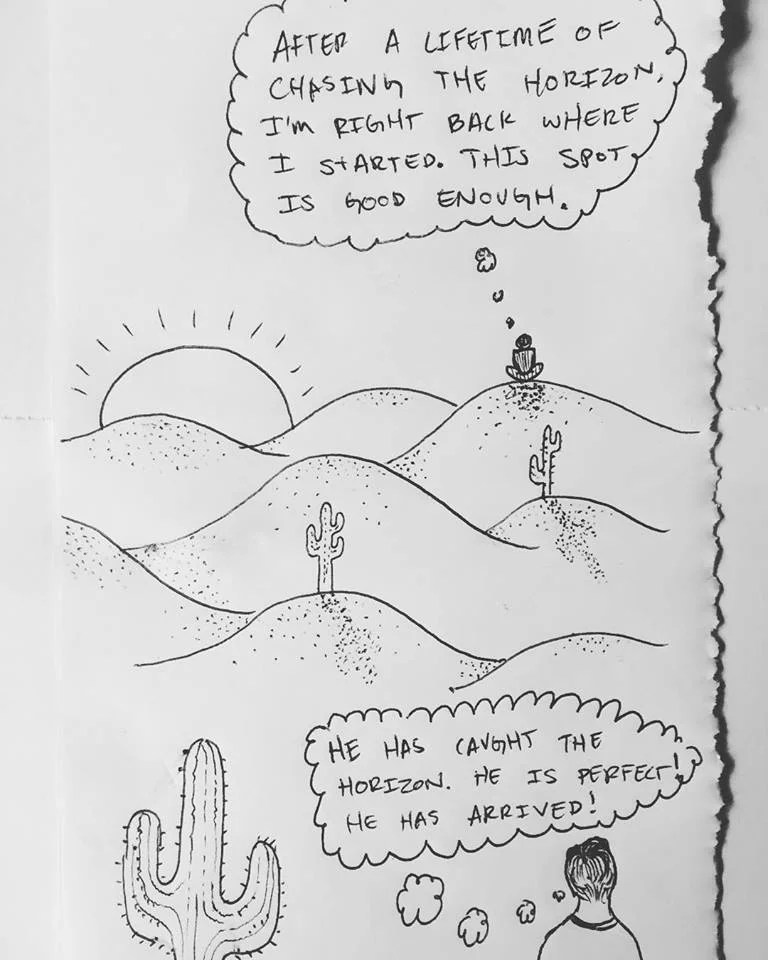 AFTER A LIFETIME OF
CHASING THE HORIZON,
I'M RIGHT BACK WHERE
I STARTED. THIS SPOT
IS GOOD ENOUGH.
HE HAS CAUGHT THE
HORIZON. HE IS PERFECT!
HE HAS ARRIVED!